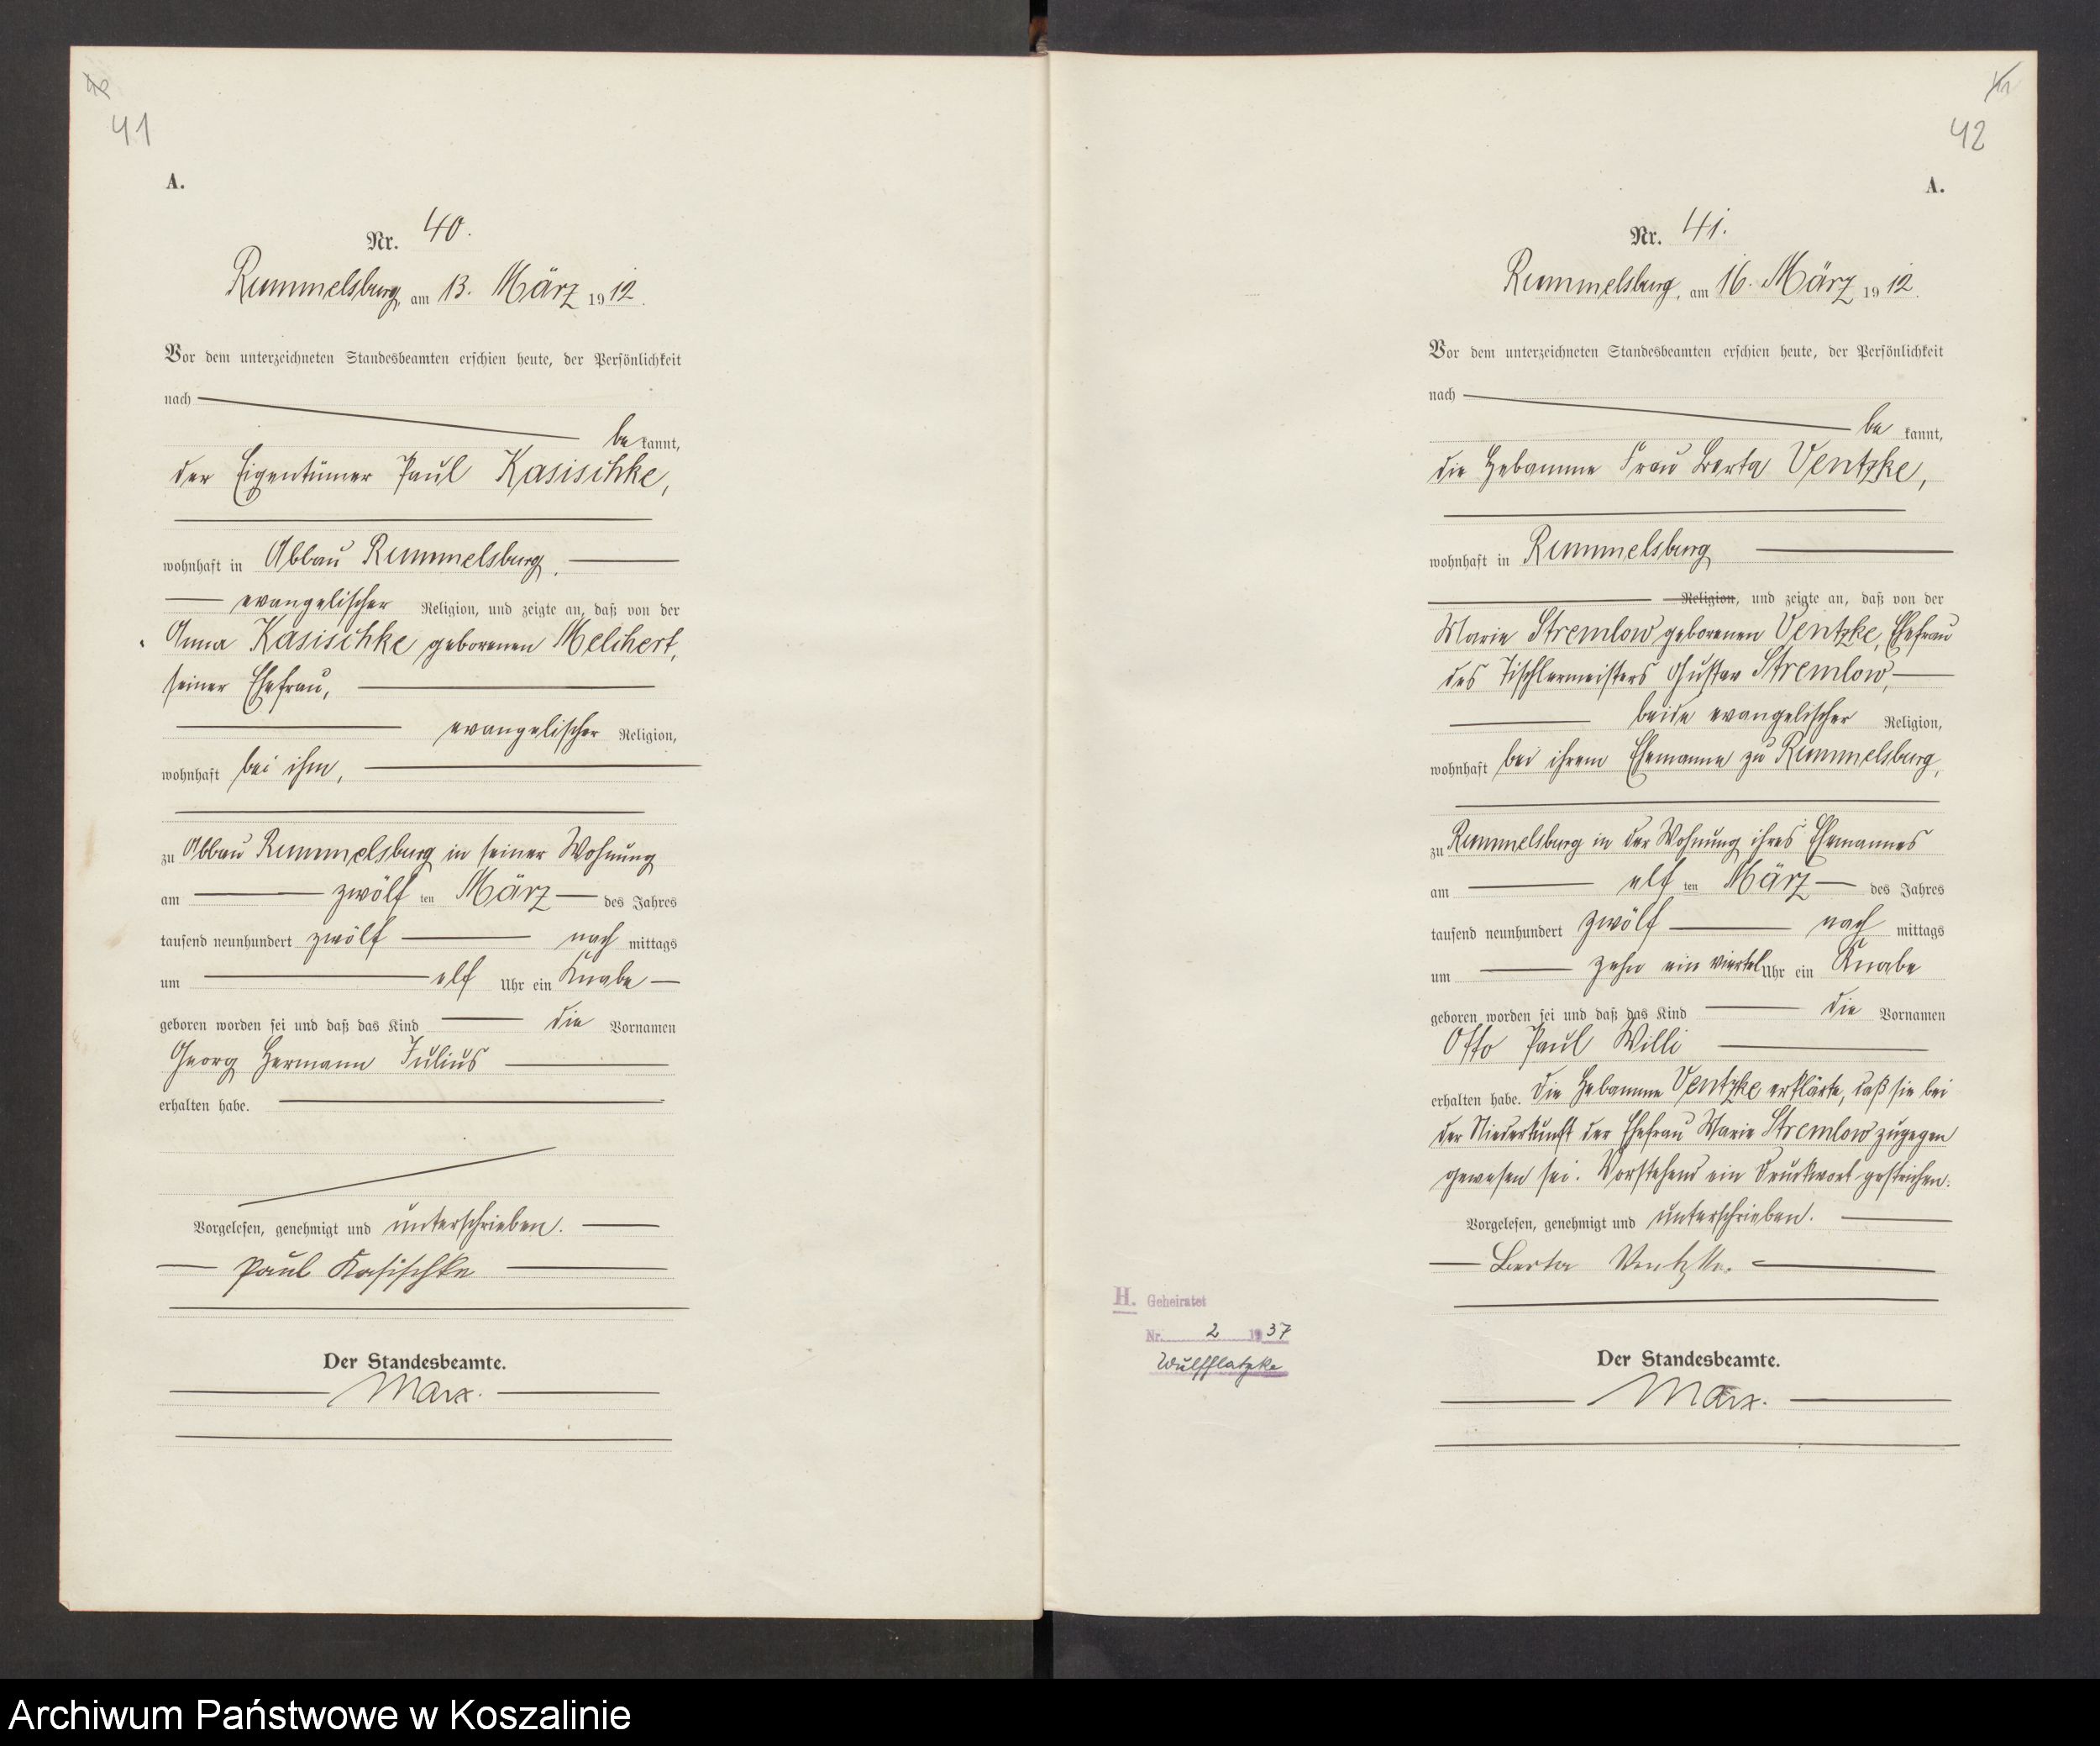 41
A.
Nr. 40.
Rummelsburg am 13. März 1912.
Vor dem unterzeichneten Standesbeamten erschien heute, der Persönlichkeit
nach
bekannt,
der Eigentümer Paul Kasischke,
wohnhaft in Abbau Rummelsburg,
evangelischer Religion, und zeigte an, daß von der
Anna Kasischke geborenen Melchert,
seiner Ehefrau,
evangelischer Religion,
wohnhaft bei ihm,
zu Abbau Rummelsburg in seiner Wohnung
am zwölften März des Jahres
tausend neunhundert zwölf nachmittags
um elf Uhr ein Knabe
geboren worden sei und daß das Kind die Vornamen
Georg Hermann Julius
erhalten habe.
Vorgelesen, genehmigt und unterschrieben.
Paul Kasischke
Der Standesbeamte.
Marx.
42
A.
Nr. 41.
Rummelsburg, am 16. März 1912.
Vor dem unterzeichneten Standesbeamten erschien heute, der Persönlichkeit
nach
bekannt,
die Hebamme Frau Berta Ventzke,
wohnhaft in Rummelsburg
Religion, und zeigte an, daß von der
Marie Stremlow geborenen Ventzke, Ehefrau
des Tischlermeisters Gustav Stremlow,
beide evangelischer Religion,
wohnhaft bei ihrem Ehemanne zu Rummelsburg,
zu Rummelsburg in der Wohnung ihres Ehemannes
am elften März des Jahres
tausend neunhundert zwölf nachmittags
um zehn ein viertel Uhr ein Knabe
geboren worden sei und daß das Kind die Vornamen
Otto Paul Willi
erhalten habe. Die Hebamme Ventzke erklärte, daß sie bei
der Niederkunft der Ehefrau Marie Stremlow zugegen
gewesen sei. Vorstehend ein Druckwort gestrichen.
Vorgelesen, genehmigt und unterschrieben.
Berta Ventzke.
H. Geheiratet
Nr. 2 1937
Wulfflatzke
Der Standesbeamte.
Marx.
Archiwum Państwowe w Koszalinie